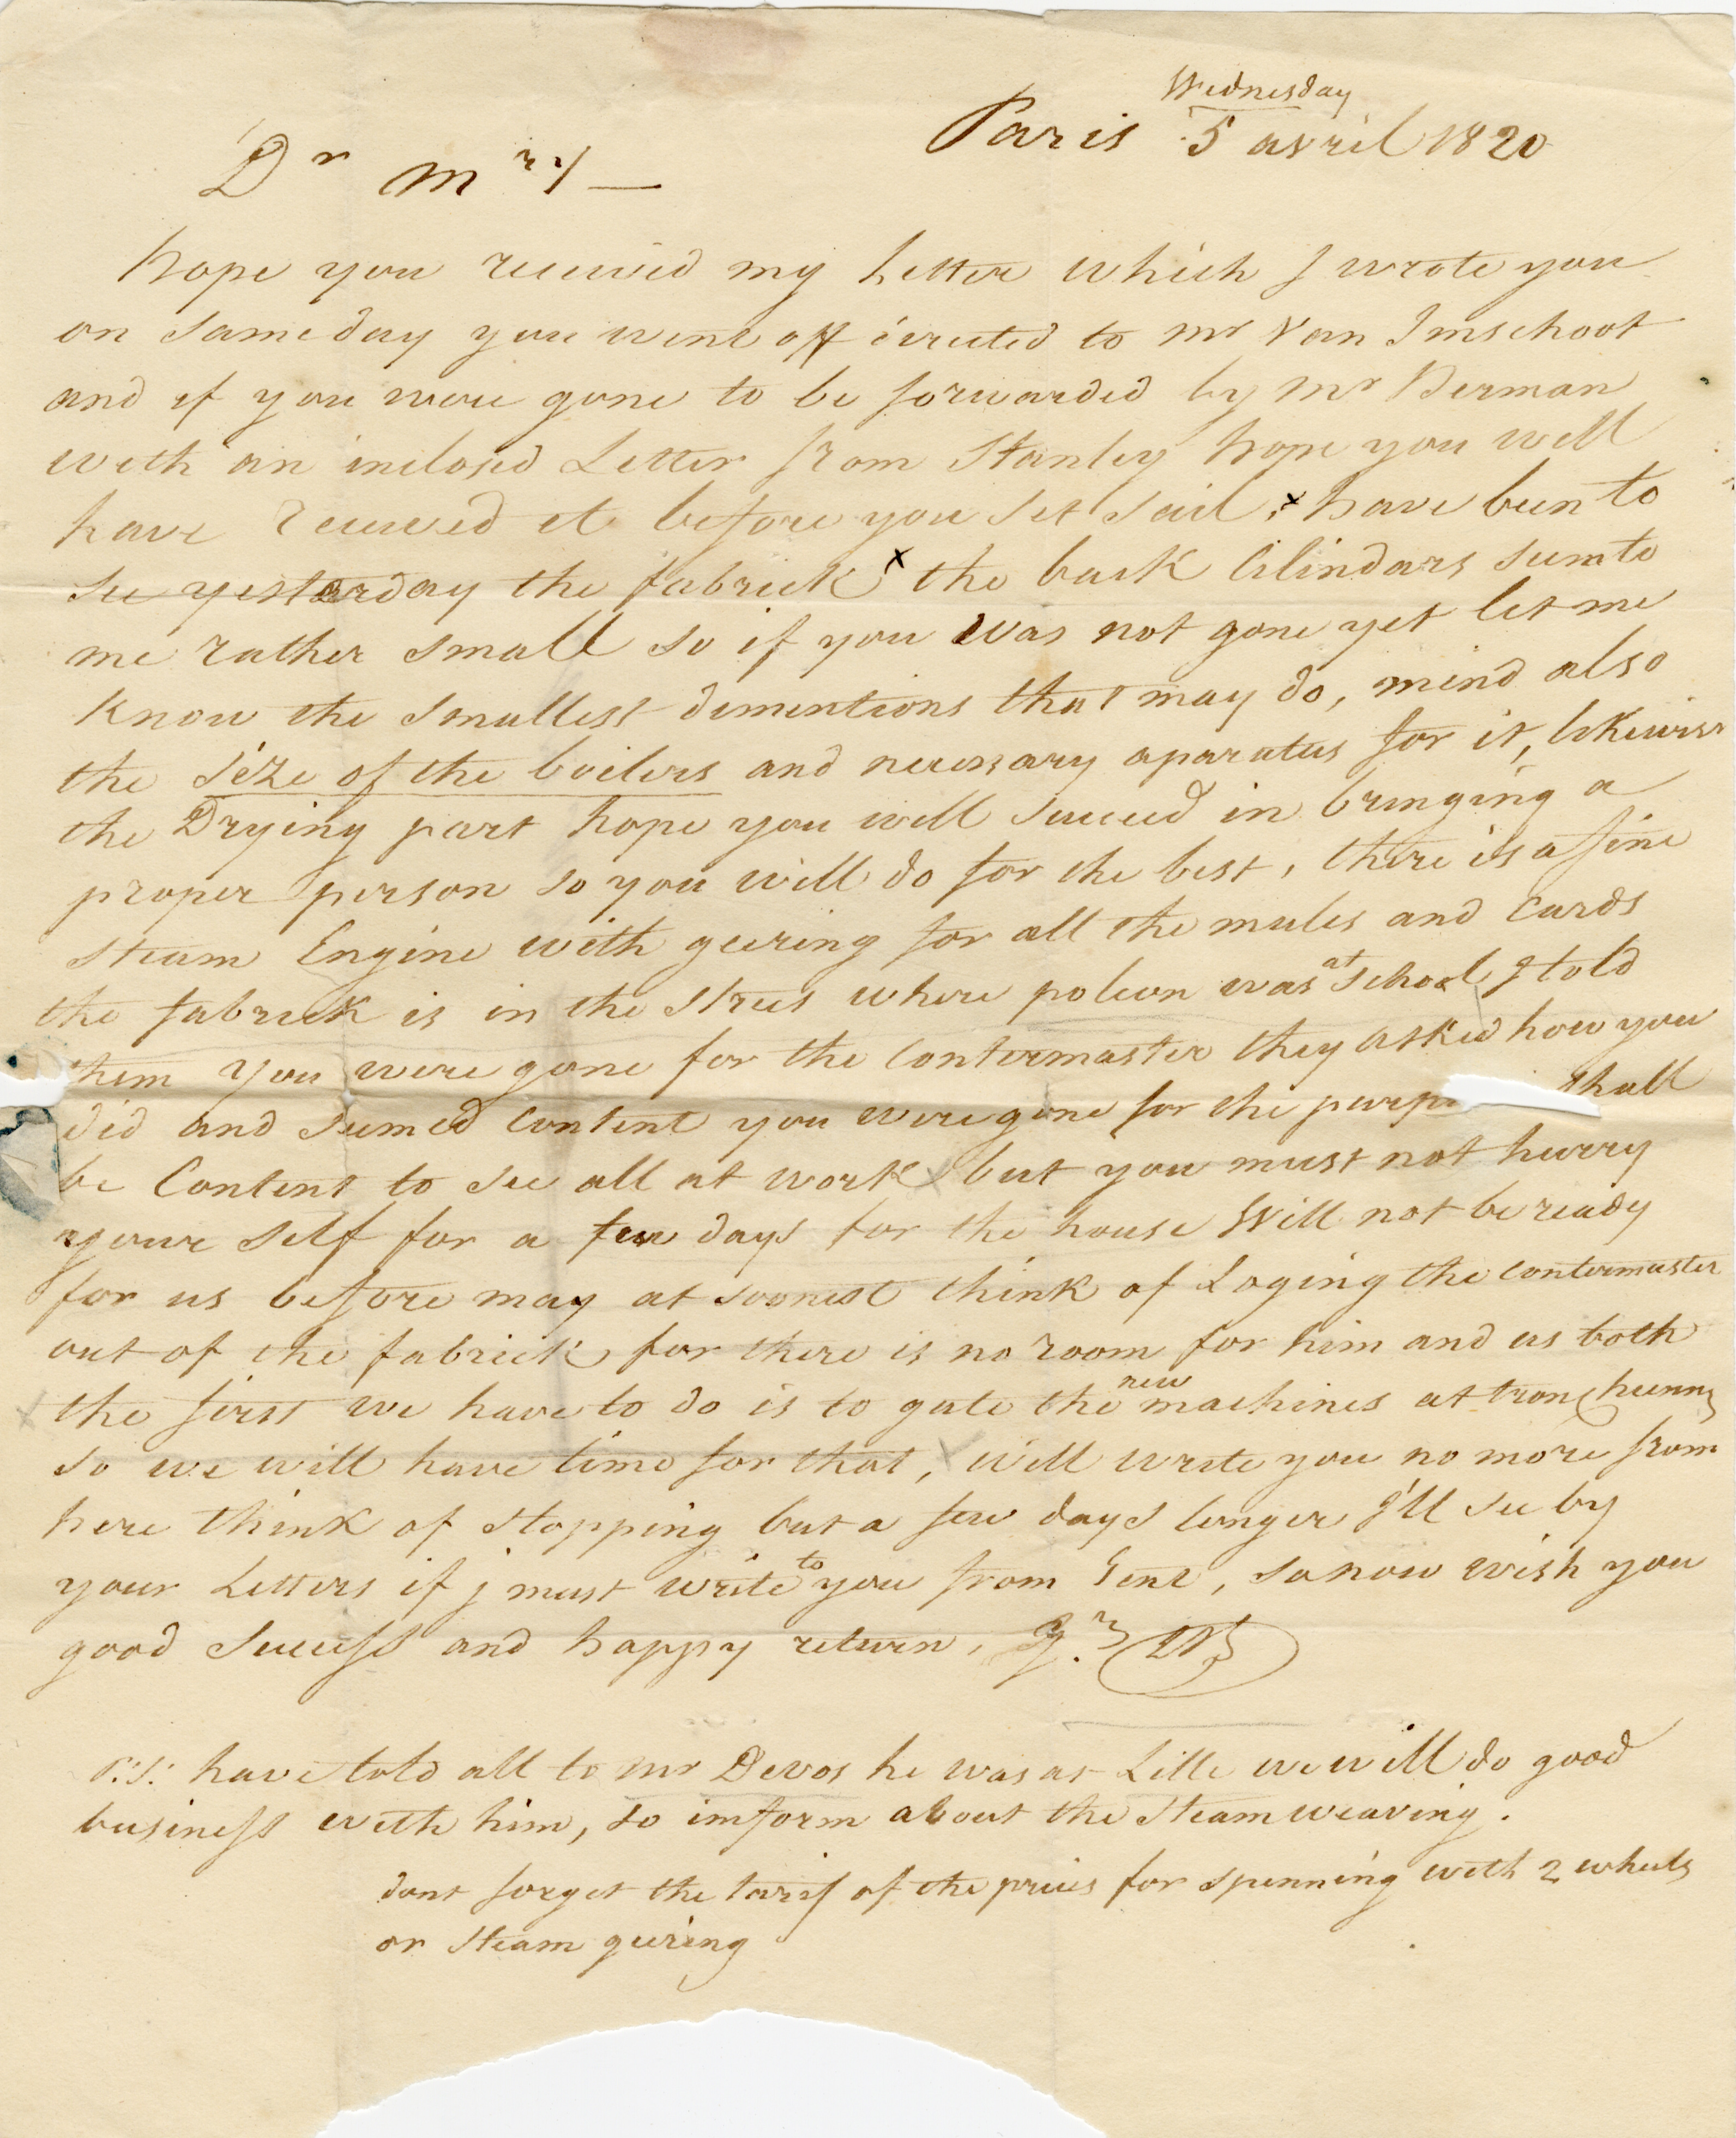 Wednesday
Paris 5 avril 1820
Dr Mry —
hope you received my Letter which J wrote you
on same day you went off directed to Mr Van Imschoot
and if you were gone to be forwarded by Mr Berman
with an inclosed Letter from Stanley hope you will
have received it before you set sail, x have been to
see yesterday the fabrick x the back Cilindars seem to
me rather small so if you was not gone yet let me
know the smallest dimentions that may do, mind also
the size of the boilers and necessary aparatus for it, likewise
the Drying part hope you will succeed in bringing a
proper person so you will do for the best, there is a fine
steam Engine with geering for all the mules and Cards
the fabrick is in the Street where poleon was at School J told
them you were gone for the Contermaster they asked how you
did and seemed Content you were gone for the purpo shall
be Content to see all at work but you must not hurry
your self for a few days for the house Will not be ready
for us before may at soonest think of Loging the contermaster
out of the fabrick for there is no room for him and as both
the first we have to do is to gate the new machines at tronchienn
so we will have time for that, will write you no more from
here think of stopping but a few days longer J'll see by
your Letters if j must write to you from Gent, so now wish you
good Success and happy return,
P:S: have told all to Mr Devos he was at Lille we will do good
business with him, so imform about the Steam weaving.
dont forget the tarif of the prices for spinning with 2 wheels
or steam geering